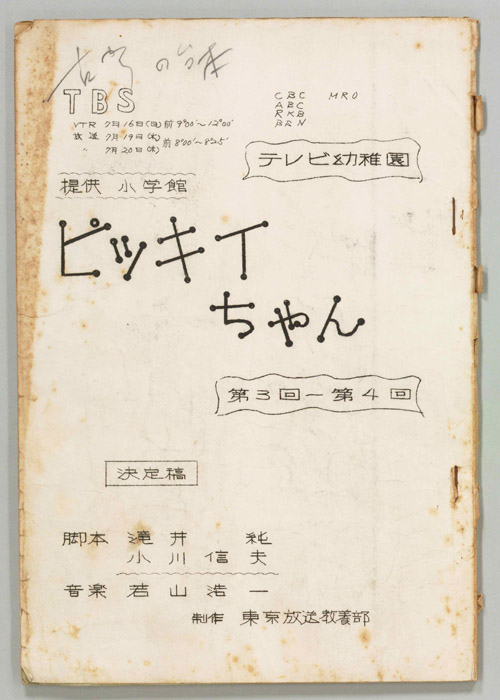 の台本
TBS
VTR 7月16日(日)前9°00'～12°00'
放送 7月19日(水)
〃 7月20日(木)
前8°00'～8°25'
CBC MRO
ABC
RKB
BSN
テレビ幼稚園
提供 小学館
ピッキイ
ちゃん
第3回ー第4回
決定稿
脚本 滝井 純
小川信夫
音楽 若山浩一
制作 東京放送教養部